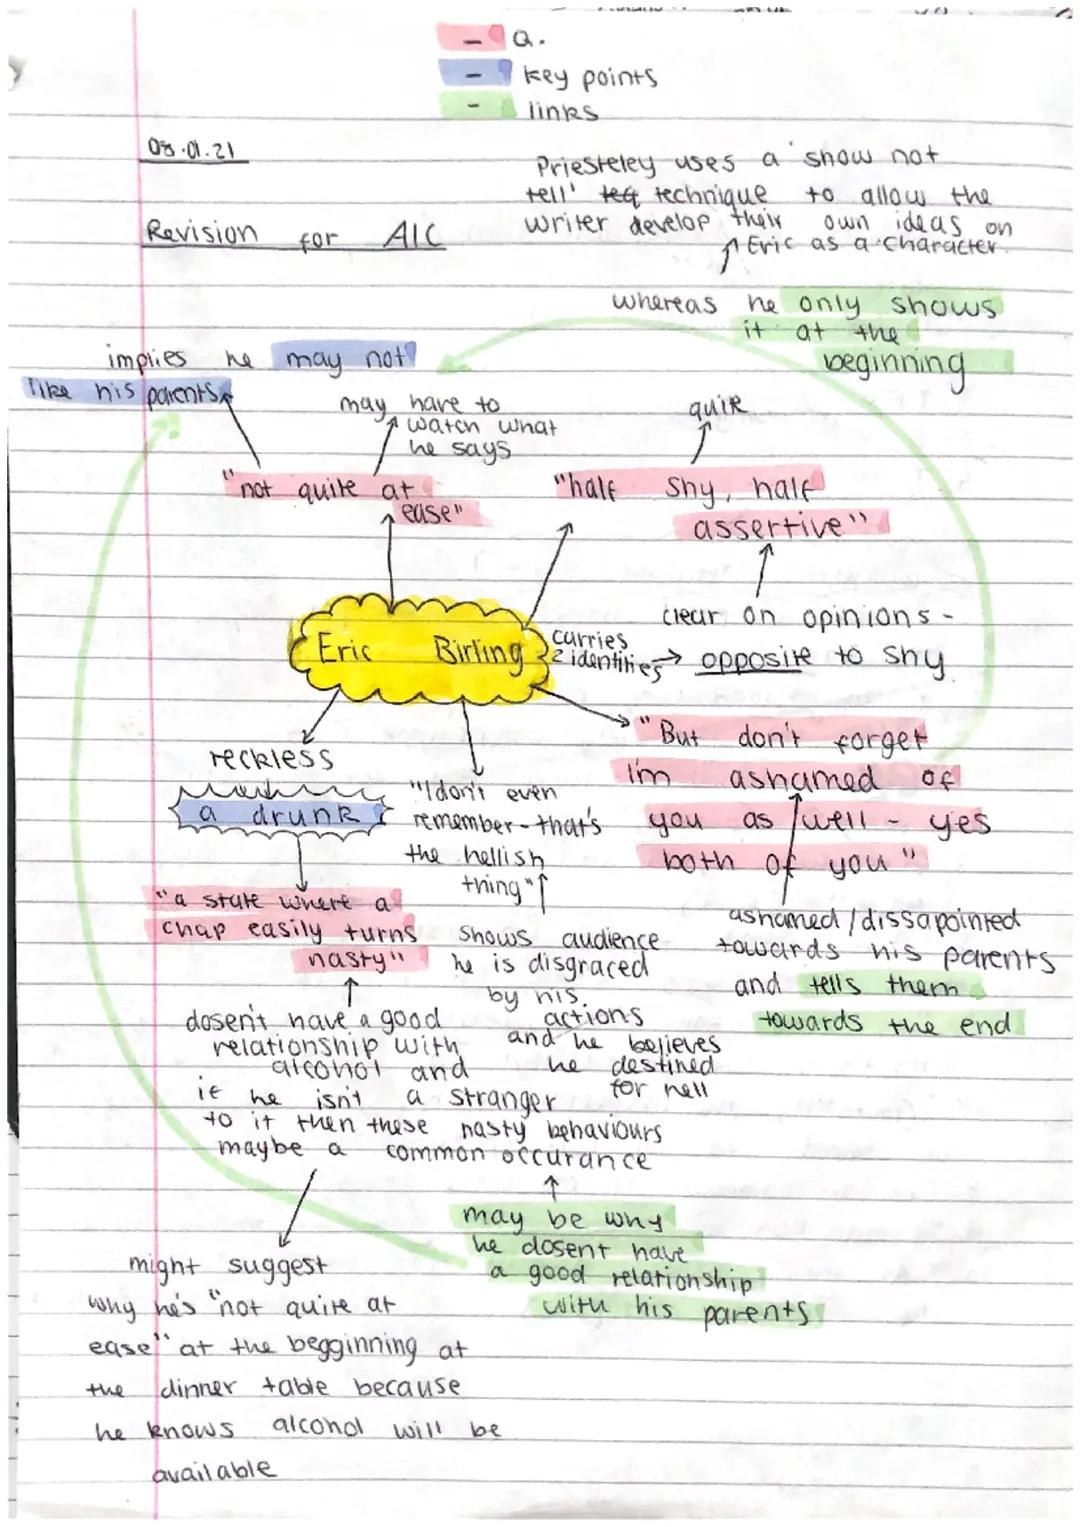 - Q.
- key points
- links
08.01.21
Revision for AIC
Priesteley uses a 'show not
tell' teq technique to allow the
writer develop their own ideas on
Eric as a character.
whereas he only shows
it at the
beginning
implies he may not
like his parents
may have to
watch what
he says
quite
"not quite at
ease"
"half shy, half
assertive"
clear on opinions -
opposite to shy
Eric Birling
carries
2 identities
"But don't forget
i'm ashamed of
you as well - yes
both of you"
reckless
a drunk
"I don't even
remember - that's
the hellish
thing"
"a state where a
chap easily turns
nasty"
shows audience
he is disgraced
by his
actions
and he believes
he destined
for hell
ashamed/dissapointed
towards his parents
and tells them
towards the end
dosen't have a good
relationship with
alcohol and
if he isn't a stranger
to it then these nasty behaviours
maybe a common occurance
may be why
he dosent have
a good relationship
with his parents
might suggest
why he's "not quite at
ease" at the begginning at
the dinner table because
he knows alcohol will be
available